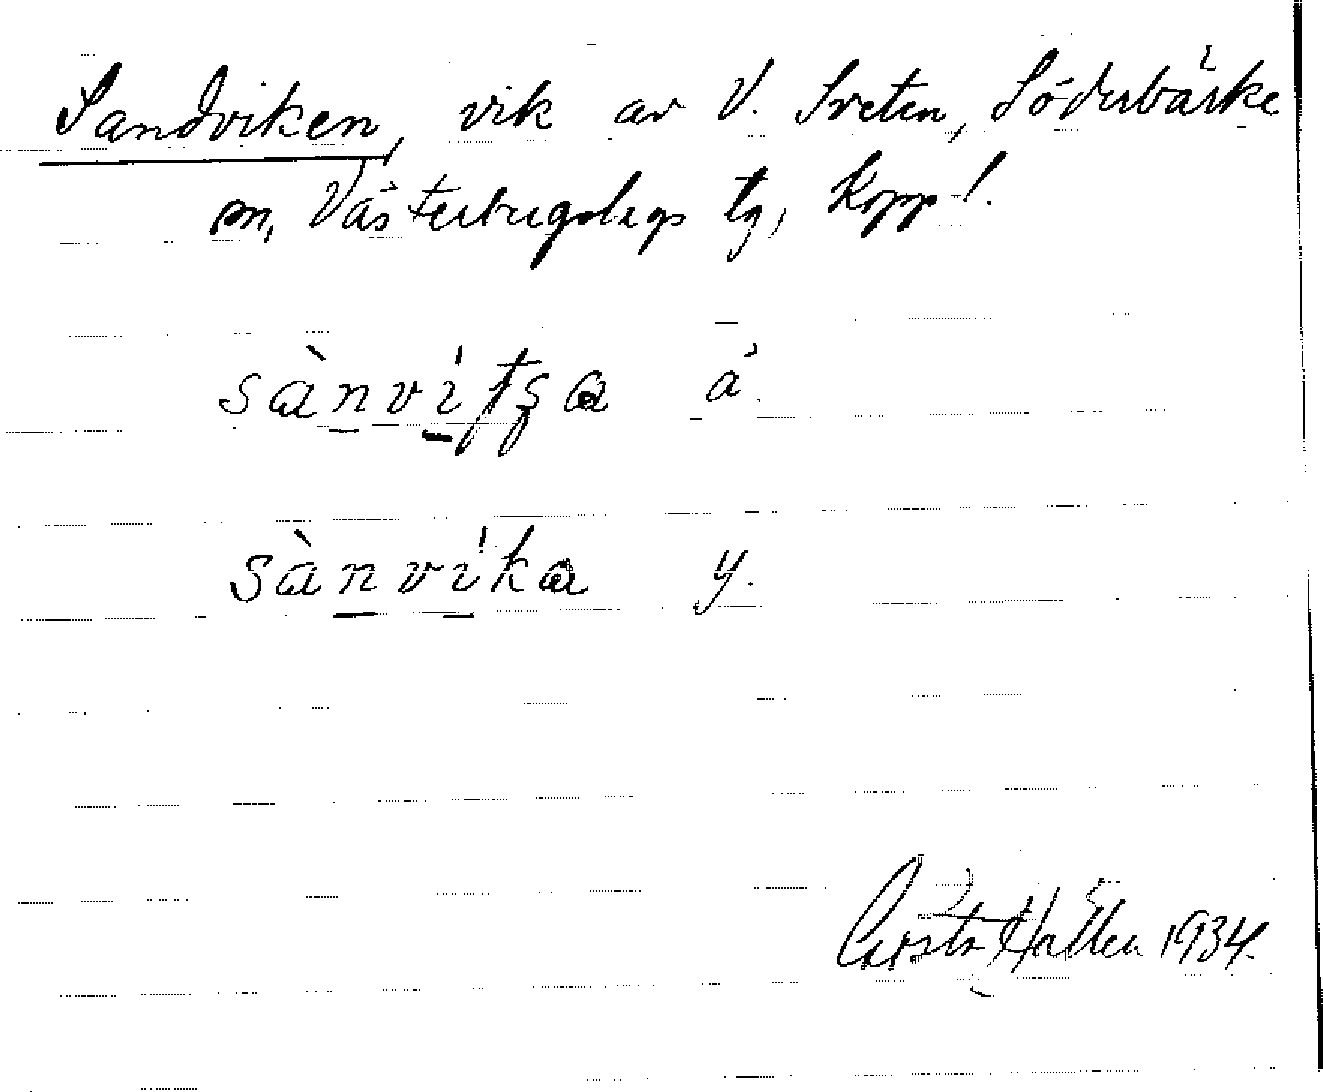 Sandviken, vik av V. Sveten, Söderbärke
sn, Västerbergslags tg, Kopp. l.
sànvítʂa ä.
sànvíka y.
Hallén 1934.